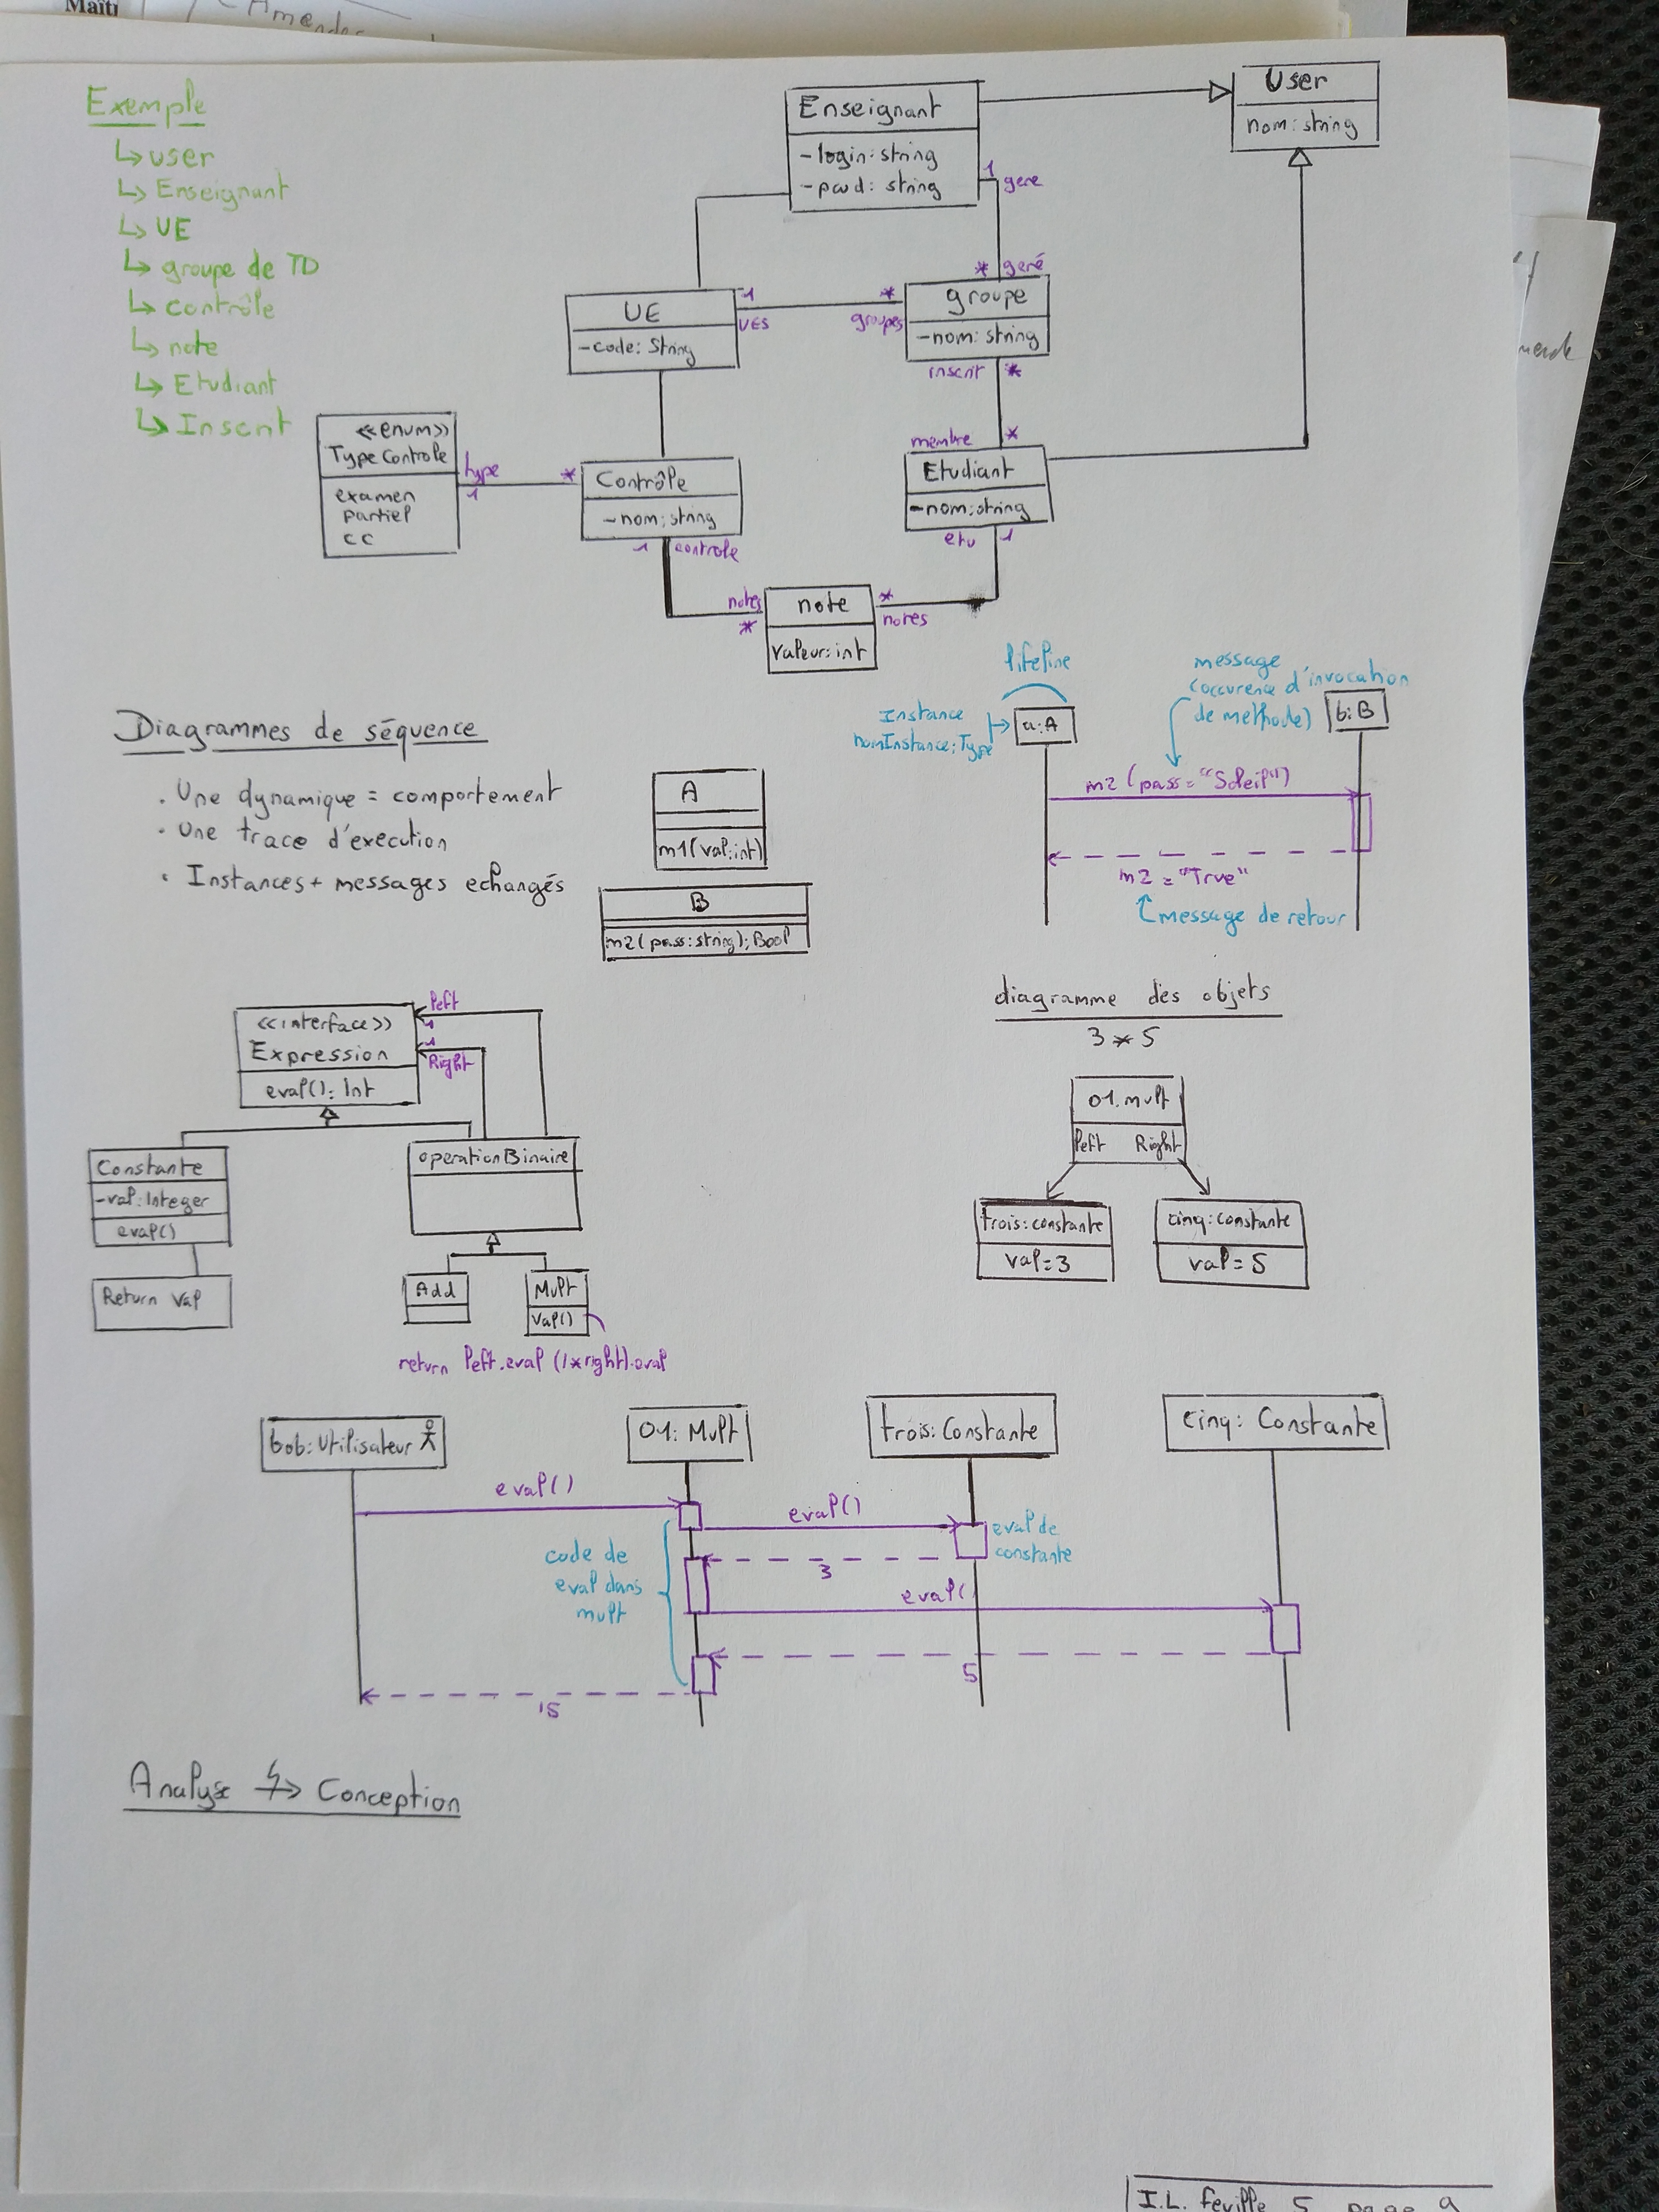 Maîtr
Exemple
↳ user
↳ Enseignant
↳ UE
↳ groupe de TD
↳ contrôle
↳ note
↳ Etudiant
↳ Inscrit
Enseignant
-login: string
-pwd: string
User
nom: string
1
gere
* geré
UE
-code: String
1
UEs
*
groupes
groupe
-nom: string
inscrit *
<<enum>>
TypeControle
examen
partiel
CC
type
1
*
Contrôle
-nom: string
1 controle
membre *
Etudiant
-nom: string
etu 1
notes
*
note
valeur: int
*
notes
Diagrammes de séquence
. Une dynamique = comportement
. Une trace d'execution
. Instances + messages echangés
A
m1(val: int)
B
m2(pass: string): Bool
lifeline
Instance
nomInstance: Type
a: A
message
(occurence d'invocation
de methode)
b: B
m2 (pass = "Soleil")
m2 = "True"
message de retour
<<interface>>
Expression
eval(): Int
left
1
1
Right
Constante
-val: Integer
eval()
Return val
operationBinaire
Add
Mult
Val()
return left.eval (1*right).eval
diagramme des objets
3 * 5
O1. mult
left Right
trois: constante
val = 3
cinq: constante
val = 5
bob: Utilisateur
O1: Mult
trois: Constante
cinq: Constante
eval()
eval()
eval de
constante
code de
eval dans
mult
3
eval(
5
15
Analyse ↯→ Conception
I.L. feuille 5 page 9